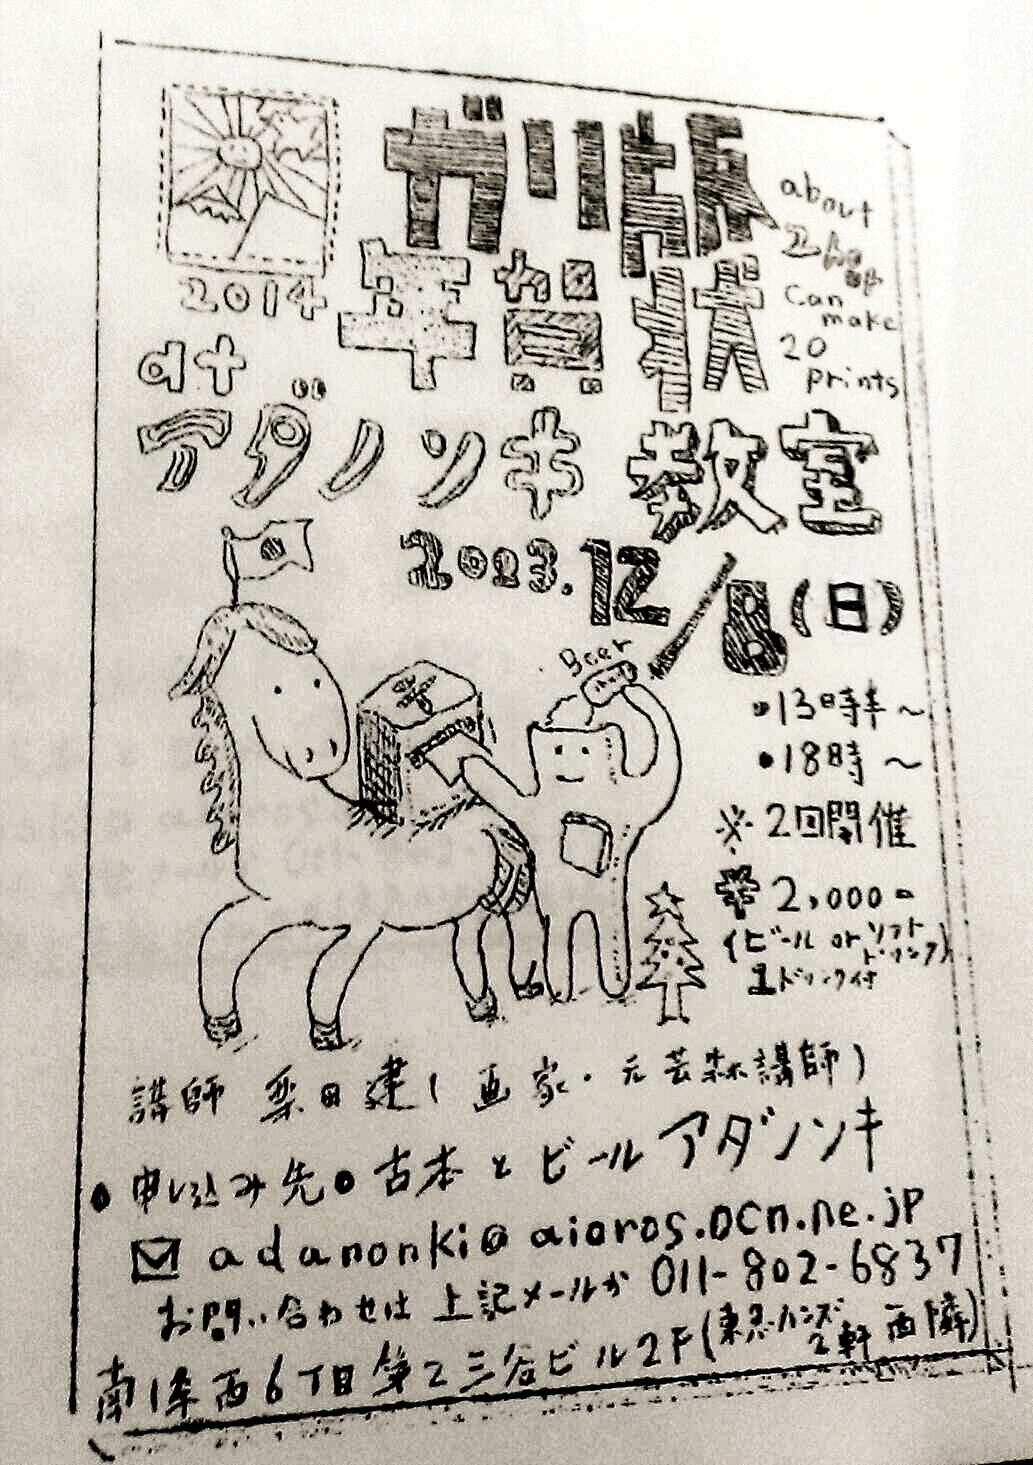 ガリ版
about
2hour
can
make
20
prints
2014
年賀状
at
アダノンキ
教室
2013.12/8(日)
Beer
•13時半～
•18時～
※2回開催
¥2,000-
(ビール or ソフトドリンク)
1ドリンク付
講師 栗田健(画家・元芸森講師)
•申し込み先•古本とビールアダノンキ
adanonki@aioros.ocn.ne.jp
お問い合わせは上記メールか 011-802-6837
南1条西6丁目第2三谷ビル2F(東急ハンズ2軒西隣)